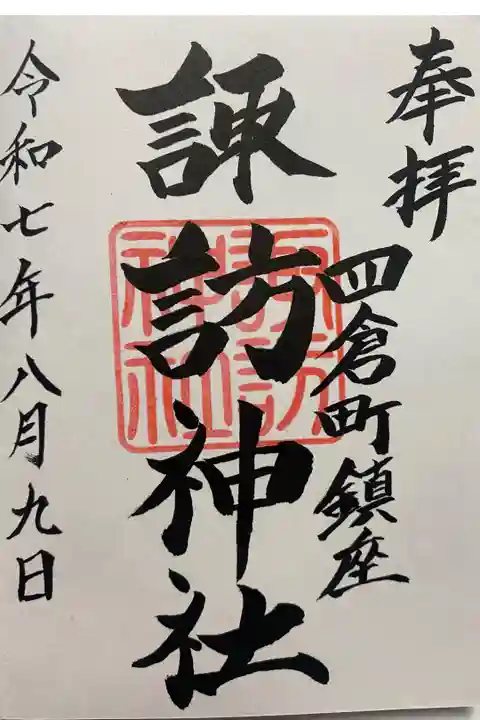 奉拝
四倉町鎮座
諏訪神社
諏訪
神社
令和七年八月九日